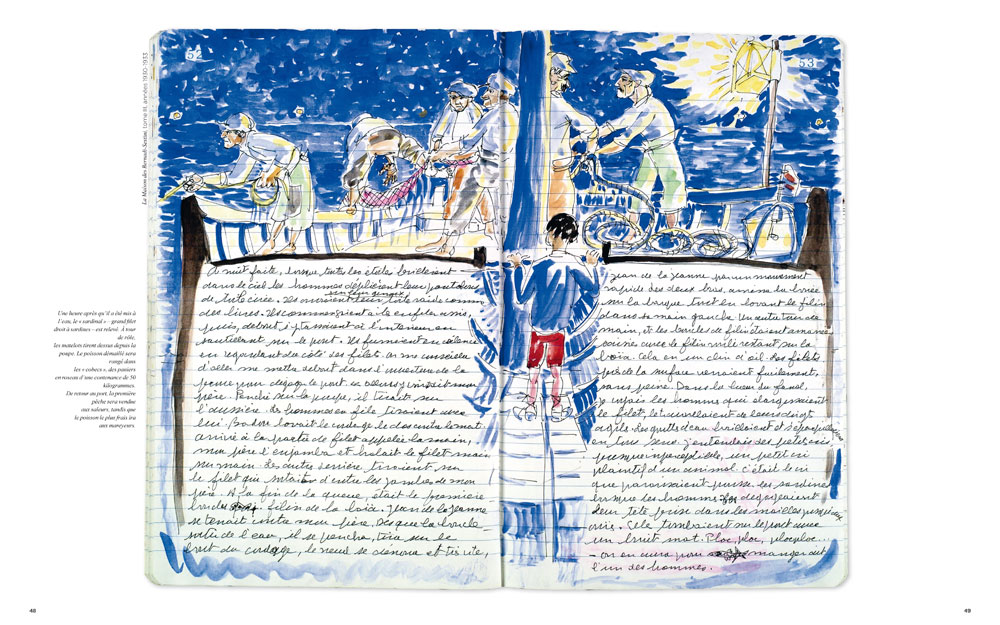 La Maison des Bernult-Sestine, tome III, années 1930-1933.
52
53
Une heure après qu'il a été mis à
l'eau, le « sardinal » – grand filet
droit à sardines – est relevé. À tour
de rôle,
les matelots tirent dessus depuis la
poupe. Le poisson démaillé sera
rangé dans
les « cobecs », des paniers
en roseau d'une contenance de 50
kilogrammes.
De retour au port, la première
pêche sera vendue
aux saleurs, tandis que
le poisson le plus frais ira
aux mareyeurs.
A nuit faite, lorsque toutes les étoiles brillèrent
dans le ciel les hommes déplièrent leur pantalons
de toile cirée. Ils
sur leur genoux
raide comme
des livres. Ils commencèrent à les enfiler assis,
puis, debout, à l'intérieur en
sautillant sur le pont. Ils fumaient en silence
en regardant de côté des filets. On me conseilla
d'aller me mettre debout dans l'ouverture de la
proue pour dégager le pont.
père. Penché sur la poupe, il tirait sur
l'aussière. Les hommes en file tiraient avec
lui. lovait le cordage le dos contre le mât.
arrivé à la partie du filet appelée la main,
mon père l'enjamba et halait le filet main
sur main. Les autres derrière tiraient sur
le filet qui sortait d'entre les jambes de mon
père. A la fin de la queue, était la première
boucle filin de la boïa. Jean de la Jeanne
se tenait contre mon père. Dès que la boucle
sortie de l'eau, il se pencha, tira sur le
bout du cordage, le nœud se dénoua et très vite,
Jean de la Jeanne par un mouvement
rapide des deux bras, amena la bouée
sur la barque tout en lovant le filin
dans sa main gauche. Un autre tour de
main, et les boucles de filin étaient amarrées
avec le filin resté sur la
boïa. Cela en un clin d'œil. Les filets
près de la surface venaient facilement,
sans peine. Dans la lueur du fanal,
je voyais les hommes qui élargissaient
le filet, le de leurs doigts
agiles. Des gouttes d'eau brillaient et s'éparpillaient
en tous sens. J'entendais des petits cris
presque imperceptibles, un petit cri
plaintif d'un animal. C'était le cri
que paraissaient pousser les sardines
lorsque les hommes dégageaient
leur tête prise dans les mailles jusqu'aux
ouïes. Elle tombaient sur le pont avec
un bruit mat. Ploc, ploc, plocploc...
– On en aura pour manger dit
l'un des hommes.
48
49